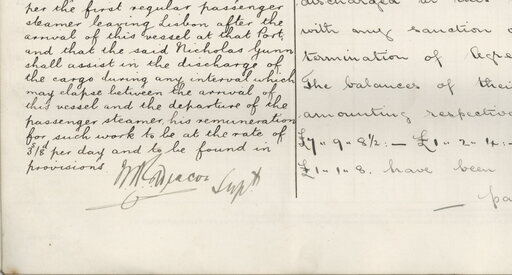 per the first regular passenger
steamer leaving Lisbon after the
arrival of this vessel at that Port,
and that the said Nicholas Gunn
shall assist in the discharge of
the cargo during any interval which
may elapse between the arrival of
this vessel and the departure of the
passenger steamer, his remuneration
for such work to be at the rate of
per day and to be found in
provisions
Supt
discharged at this
with any sanction o
termination of agre
The balances of their
amounting respective
£7" 9" 8½:— £1" 2" 4:—
£1" 1" 8. have been
pa